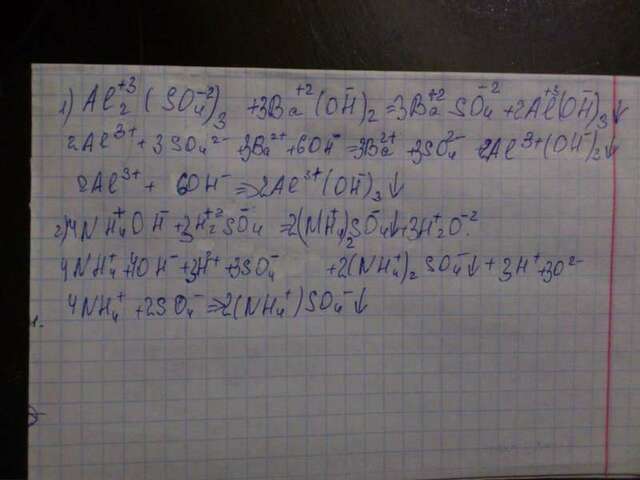 1) Al₂⁺³(SO₄⁻²)₃ +3Ba⁺²(OH⁻)₂ =3Ba⁺²SO₄⁻² +2Al⁺³(OH⁻)₃↓
2Al³⁺ + 3SO₄²⁻ 3Ba²⁺ +6OH⁻ =3Ba²⁺ +3SO₄²⁻ 2Al³⁺(OH⁻)₃↓
2Al³⁺ + 6OH⁻ ⇒2Al³⁺(OH⁻)₃↓
2) 4NH₄⁺OH⁻ +3H₂⁺²SO₄⁻ =2(NH₄⁺)₂SO₄⁻↓+3H₂⁺O⁻².
4NH₄⁺ +4OH⁻ +3H²⁺ +3SO₄⁻ +2(NH₄⁺)₂SO₄⁻↓ + 3H⁺ +3O²⁻
4NH₄⁺ +2SO₄⁻ ⇒2(NH₄⁺)SO₄⁻↓